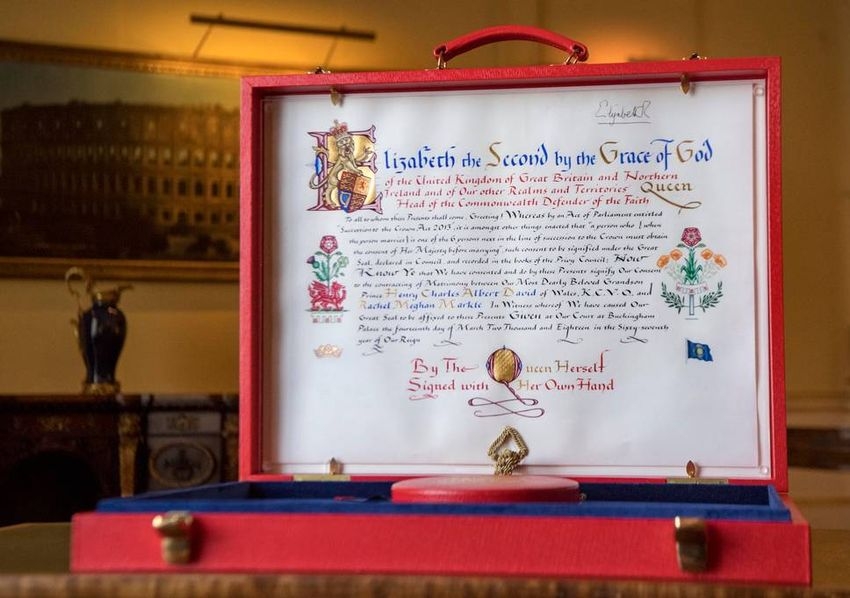 Elizabeth R
Elizabeth the Second by the Grace of God
of the United Kingdom of Great Britain and Northern
Ireland and of Our other Realms and Territories Queen
Head of the Commonwealth Defender of the Faith
To all to whom these Presents shall come, Greeting! Whereas by an Act of Parliament entitled
"Succession to the Crown Act 2013", it is amongst other things enacted that "a person who (when
the person marries) is one of the 6 persons next in the line of succession to the Crown must obtain
the consent of Her Majesty before marrying" such consent to be signified under the Great
Seal, declared in Council, and recorded in the books of the Privy Council: Now
Know Ye that We have consented and do by these Presents signify Our Consent
to the contracting of Matrimony between Our Most Dearly Beloved Grandson
Prince Henry Charles Albert David of Wales, K.C.V.O. and
Rachel Meghan Markle In Witness whereof We have caused Our
Great Seal to be affixed to these Presents Given at Our Court at Buckingham
Palace the fourteenth day of March Two Thousand and Eighteen in the Sixty-seventh
year of Our Reign
By The Queen Herself
Signed with Her Own Hand